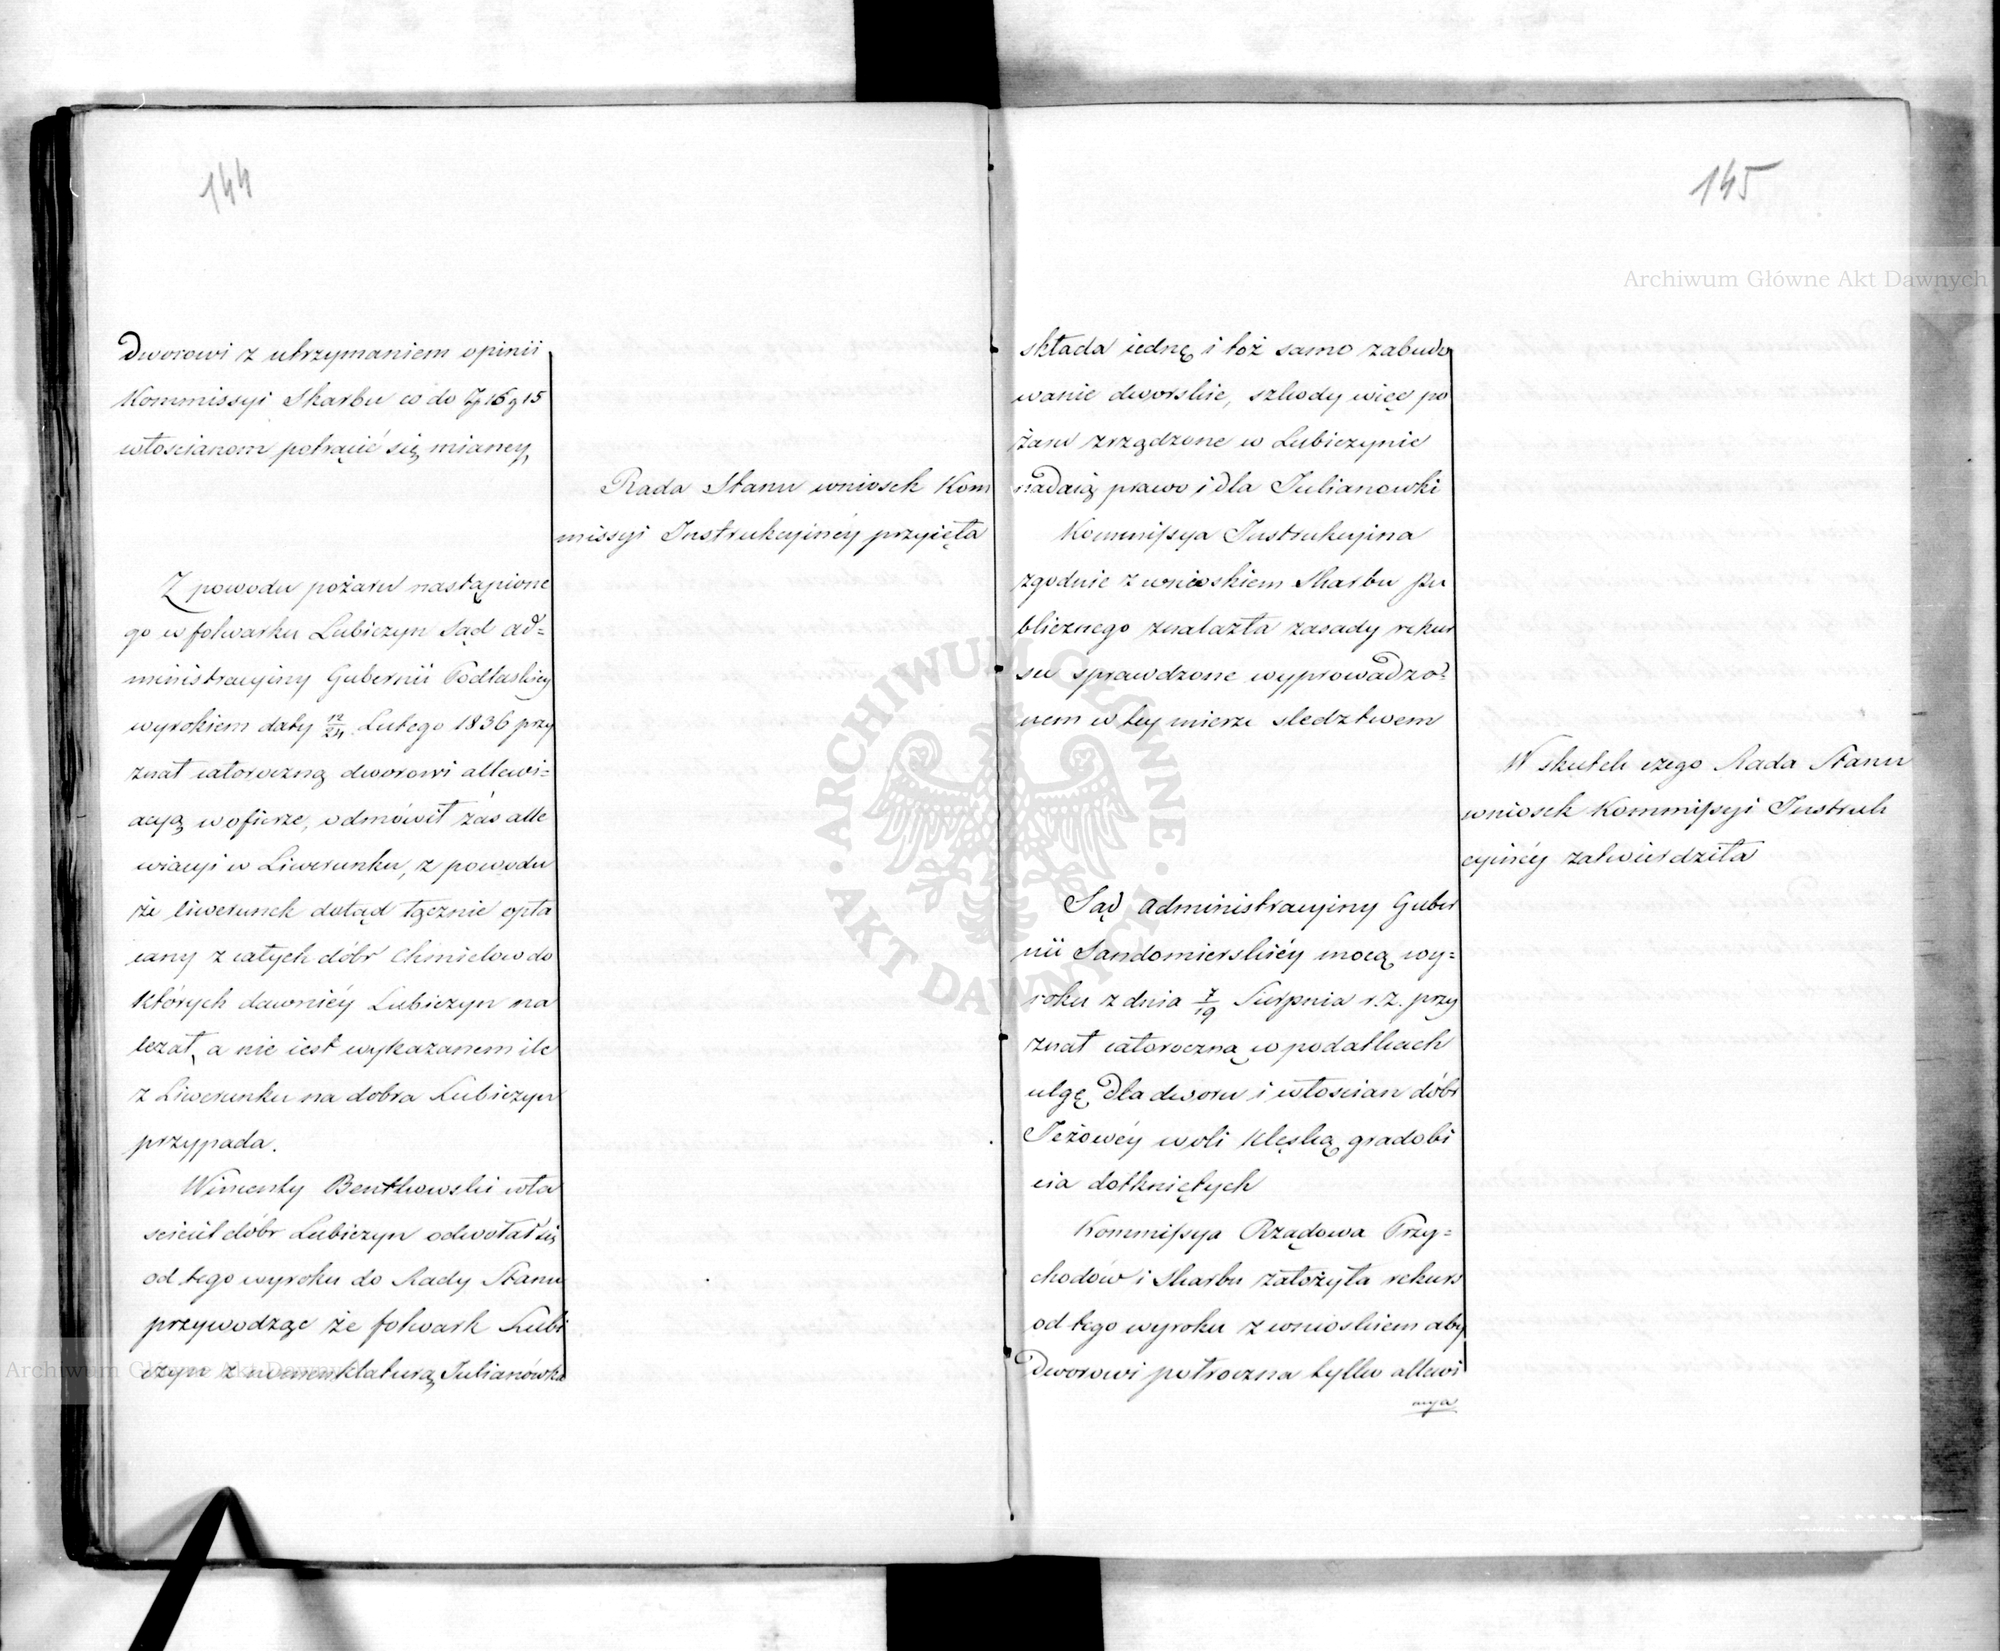 144
dworowi z utrzymaniem opinii
Kommissyi Skarbu co do
włoscianom potrącić się mianey
Rada Stanu wniosek Kom
missyi Instrukcyinéy przyięła
Z powodu pożaru nastąpione
go w folwarku Lubiczyn Sąd ad=
ministracyiny Gubernii Podlaskiey
wyrokiem daty 12/24 Lutego 1836 przy
znał całoroczną dworowi allewi=
acyą w ofierze, odmówił zás alle
wiacyi w Liwerunku, z powodu
że liwerunek dotąd łącznie opła
cany z całych dóbr Chmielow do
których dawniéy Lubiczyn na
lezał, a nie iest wykazanem ile
z Liwerunku na dobra Lubiczyn
przypada.
Wincenty Bentkowski wła
sciciel dóbr Lubiczyn odwołał się
od tego wyroku do Rady Stanu
przywodząc że folwark Lubi
czyn z nomenklaturą Julianówka
145
składa iednę i toż samo zabudo
wanie dworskie, szkody więc po
żaru zrządzone w Lubiczynie
nadaią prawo i dla Julianowki
Kommissya Instrukcyina
zgodnie z wnioskiem Skarbu pu
blicznego znalazła zasady rekur
su sprawdzone wyprowadzo=
nem w tey mierze sledztwem
W skutek czego Rada Stanu
wniosek Kommissyi Instruk
cyinéy zatwierdziła
Sąd administracyiny Guber
nii Sandomierskiéy mocą wy=
roku z dnia 7/19 Sierpnia r. z. przy
znał całoroczną w podatkach
ulgę dla dworu i włoscian dóbr
Jeżowéy woli klęską gradobi
cia dotkniętych
Kommissya Rządowa Przy=
chodów i Skarbu założyła rekurs
od tego wyroku z wnioskiem aby
dworowi półroczna tylko allewi
acya
Archiwum Główne Akt Dawnych
Archiwum Główne Akt Dawnych
ARCHIWUM GŁÓWNE · AKT DAWNYCH ·